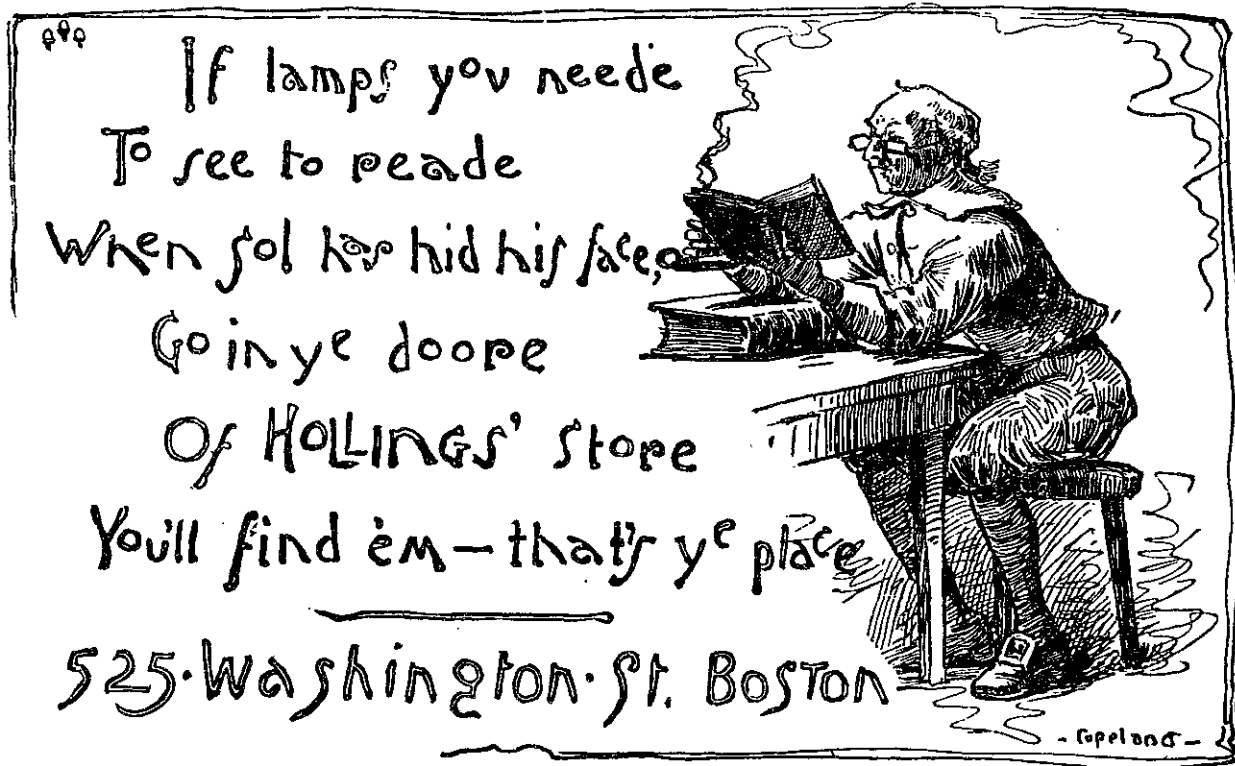 If lamps you neede
To see to reade
When Sol has hid his face,
Go in ye doore
Of HOLLINGS' store
You'll find 'em — that's ye place
525 · Washington · St. BOSTON
- Copeland -